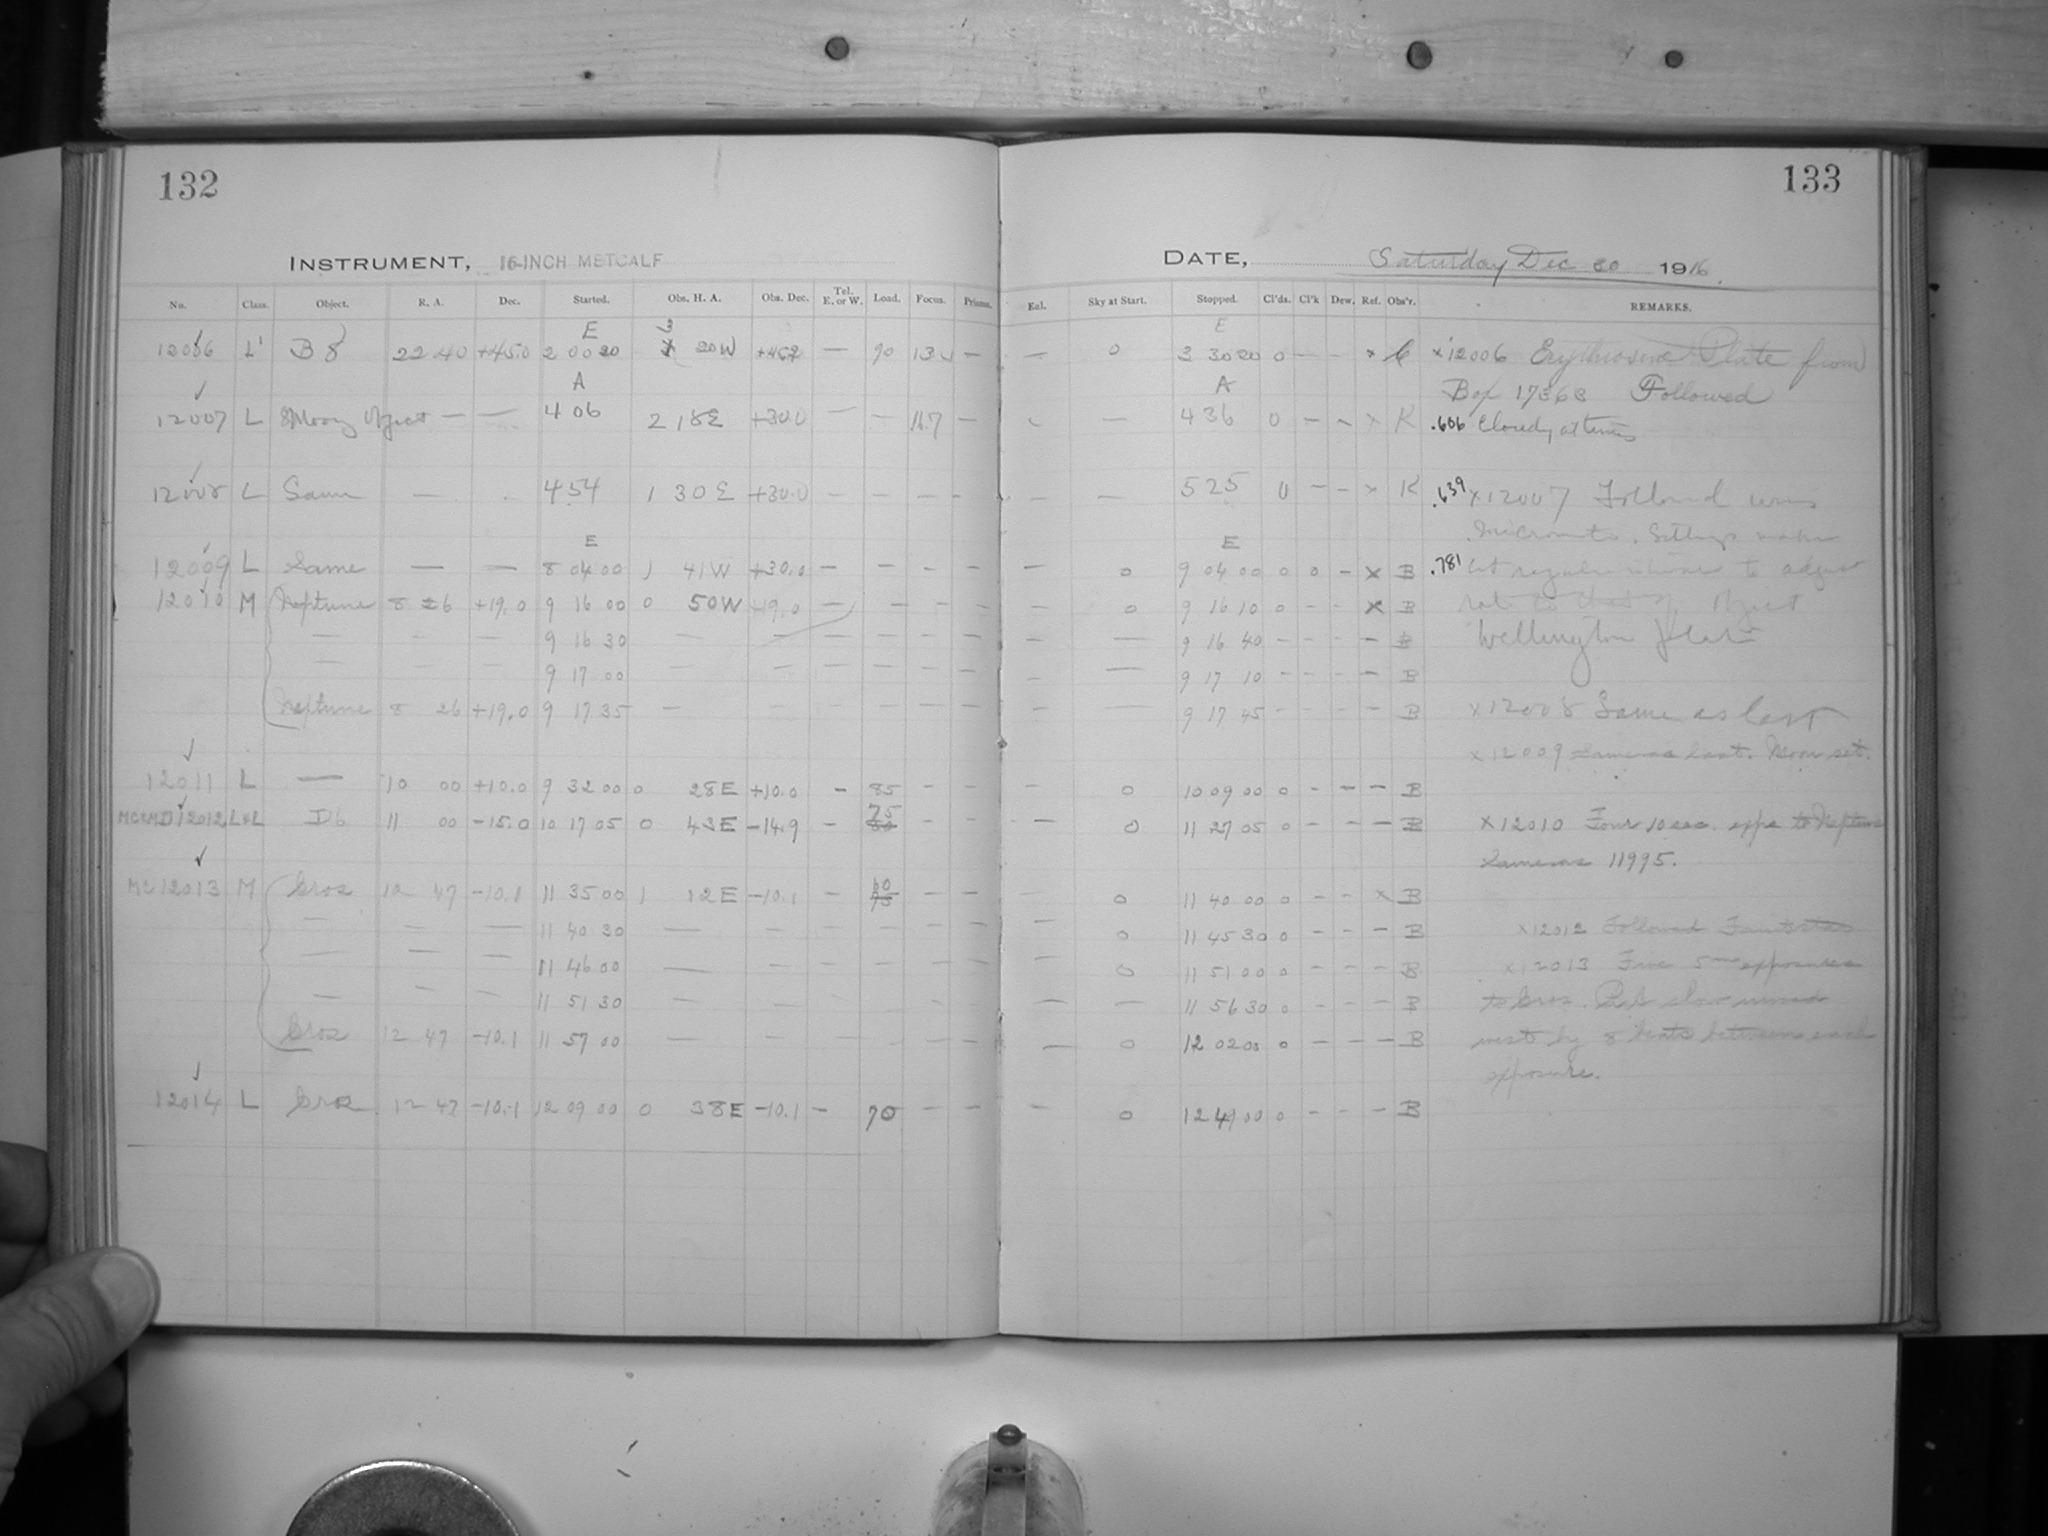 132
133
INSTRUMENT, 16-INCH METCALF
DATE, Saturday Dec 30 1916
No. Class. Object. R. A. Dec. Started. Obs. H. A. Obs. Dec. Tel. E. or W. Load. Focus. Prisms.
Eal. Sky at Start. Stopped. Cl'ds. Cl'k Dew. Ref. Obs'r. REMARKS.
E 3 E
12006 L' B 8 22 40 +45.0 2 00 20 20 W — 90 — — 0 3 30 20 0 — — x x 12006 Erythrosine Plate from
A A Box 17363 Followed
12007 L Moving Object — — 4 06 2 18 E +30.0 — — — — 4 36 0 — — x K .606 Cloudy at times
12008 L Same — 4 54 1 30 E +30.0 — — — — — — 5 25 0 — — x K .639 x 12007 Followed
E E
12009 L Same — — 8 04 00 1 41 W +30.0 — — — — — 0 9 04 00 0 0 — x B .781 to adjust
12010 M Neptune 8 26 +19.0 9 16 00 0 50 W +19.0 — — — — — 0 9 16 10 0 — — x B rate to that of Object
— — — 9 16 30 — — — — — — — — 9 16 40 — — — — B Wellington plate
— — — 9 17 00 — — — — — — — — 9 17 10 — — — — B
Neptune 8 26 +19.0 9 17 35 — — — — — — — — 9 17 45 — — — — B x 12008 Same as last
x 12009 Same as last. Moon set.
12011 L — 10 00 +10.0 9 32 00 0 28 E +10.0 — 85 — — — 0 10 09 00 0 — — — B
MC&MD 12012 L&L D6 11 00 -15.0 10 17 05 0 43 E -14.9 — 75 — — — 0 11 27 05 0 — — — B x 12010 Four 10 sec. exps to Neptune
Same as 11995.
MC 12013 M Eros 12 47 -10.1 11 35 00 1 12 E -10.1 — — — — 0 11 40 00 0 — — x B
— — — 11 40 30 — — — — — — — 0 11 45 30 0 — — — B x 12012 Followed Faint star
— — — 11 46 00 — — — — — — — 0 11 51 00 0 — — — B x 12013 Five 5m exposures
— — — 11 51 30 — — — — — — — — 11 56 30 0 — — — B to Eros. slow moved
Eros 12 47 -10.1 11 57 00 — — — — — — — 0 12 02 00 0 — — — B west by 8 beats between each
exposure.
12014 L Eros 12 47 -10.1 12 09 00 0 38 E -10.1 — 70 — — — 0 12 49 00 0 — — — B